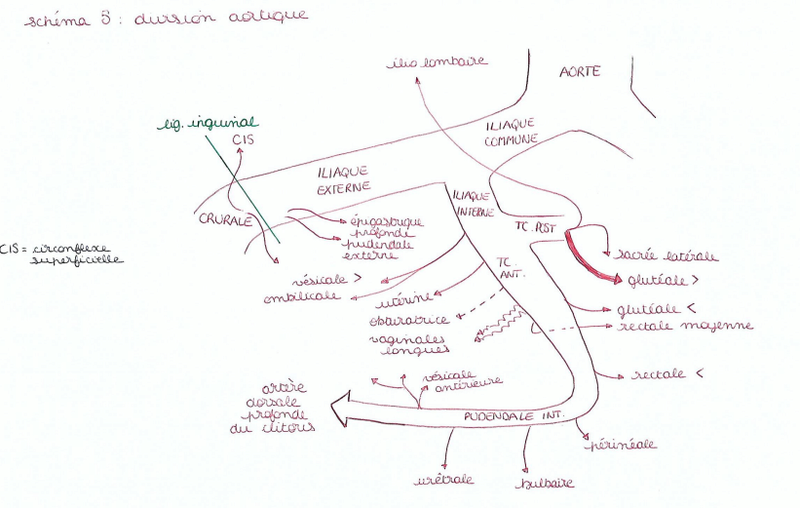 schéma 5 : division aortique
ilio lombaire
AORTE
lig. inguinal
CIS
ILIAQUE
COMMUNE
ILIAQUE
EXTERNE
ILIAQUE
INTERNE
CRURALE
TC. PST
épigastrique
profonde
pudendale
externe
CIS = circonflexe
superficielle
sacrée latérale
TC.
ANT.
glutéale >
vésicale >
ombilicale
utérine
glutéale <
obturatrice
rectale moyenne
vaginales
longues
rectale <
vésicale
antérieure
artère
dorsale
profonde
du clitoris
PUDENDALE INT.
périnéale
urétrale
bulbaire